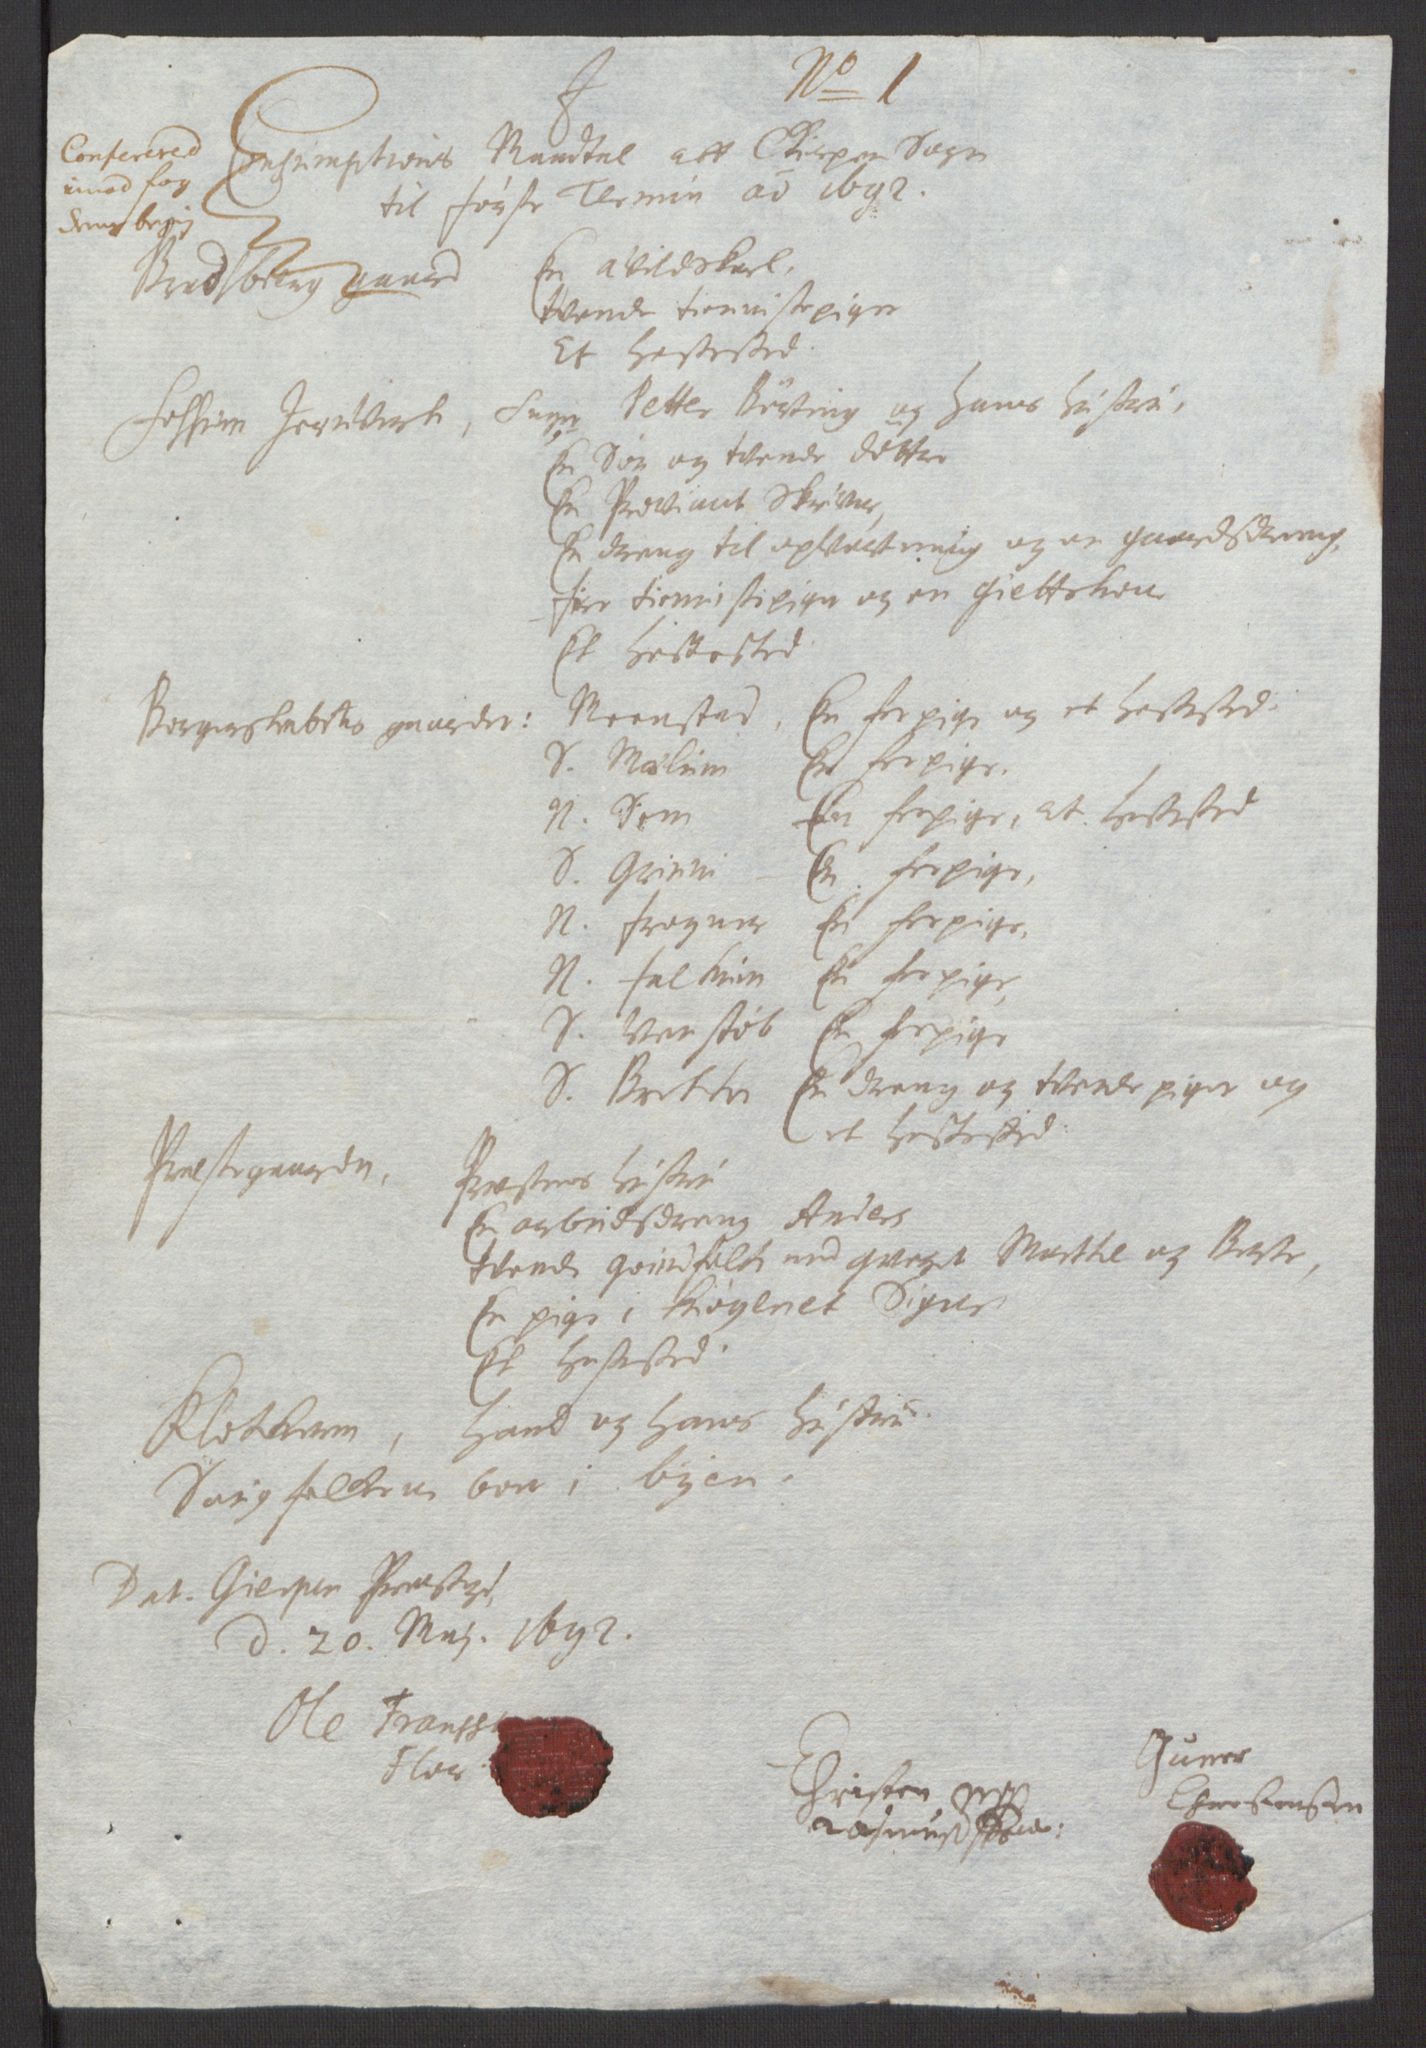 No 1
Conferered
imod fog
dens
Consumptions Mandtal aff Gierpen Sogn
til förste Termin ao 1692.
Bradsberg gaard En avildskarl,
tvende tienistepiger
Et hestested
Fossum Jernverk, Sengr Petter Börting og hans hustru,
En Sön og tvende döttre
En Proviant Skriver,
En dreng til opvartning og en gaardsdreng,
fire tienistepiger og en gietterkone
Et hestested
Borgerskabets gaarder: Meenstad, En feepige og et hestested.
S. Mælum En feepige.
N. Sem En feepige, et hestested
S. Grinni En feepige,
N. Frogner En feepige,
N. Falkum En feepige,
S. Venstöb En feepige
S. Brekke En dreng og tvende piger og
et hestested
Præstegaarden, Præstens hustru
En arbeidsdreng Anders
tvende qvindfolk med qveget Marthe og Berte,
En pige i kiögenet Siger
Et hestested.
Klokkeren, hand og hans hustru.
Sougfolkene boe i byen.
Dat. Gierpen Præstgd,
d. 20. Maj. 1692.
Ole Franss
Flor
Christen
Rasmus
Guner
Chrestensen